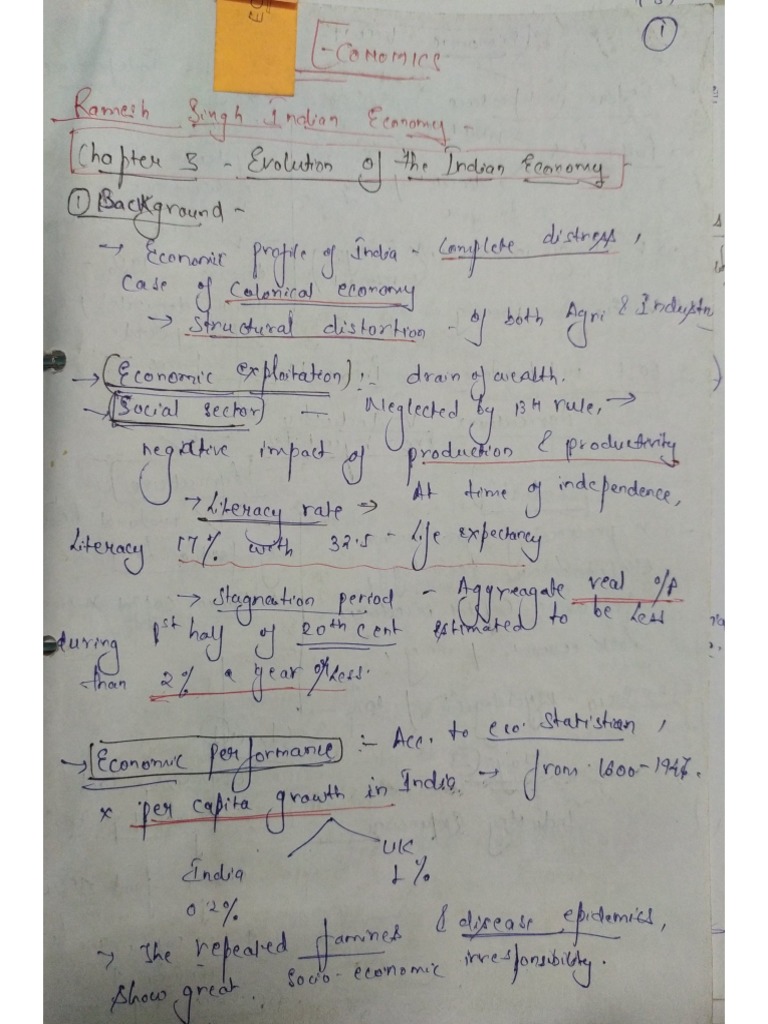 ①
ECONOMICS
Ramesh Singh Indian Economy -
Chapter 3 - Evolution of The Indian Economy -
① Background -
→ Economic profile of India - complete distress,
Case of Colonical economy
→ Structural distortion - of both Agri & Industr
→ (Economic exploitation) :- drain of wealth.
→ Social sector) - Neglected by BH rule, →
negative impact of production & productivity
→ Literacy rate → At time of independence,
Literacy 17% with 32.5 - life expectancy
→ Stagnation period - Aggreagate real o/p
during 1st half of 20th cent estimated to be Less
than 2% a year or Less.
→ Economic performance :- Acc. to eco. Statistian,
x per capita growth in India → from 1600-1947.
India UK
0.2% 1%
→ The repeated famines & disease epidemics,
Show great socio-economic irresponsibility.